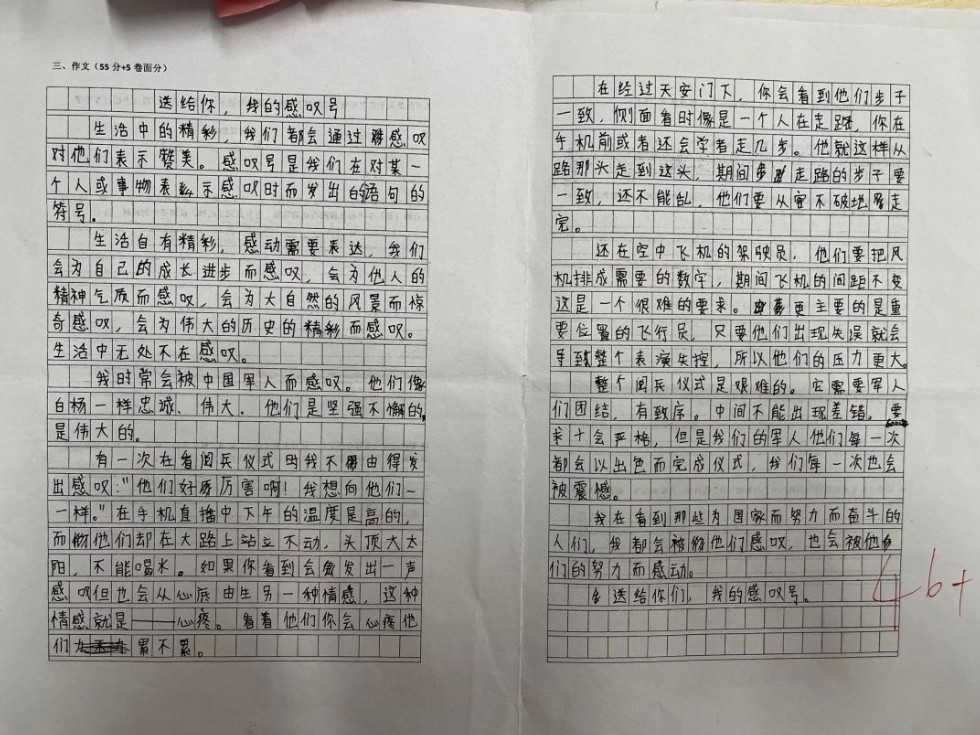 三、作文（55分+5卷面分）
送给你，我的感叹号
生活中的精彩，我们都会通过感叹
对他们表示赞美。感叹号是我们在对某一
个人或事物表示感叹时而发出的语句的
符号。
生活自有精彩，感动需要表达，我们
会为自己的成长进步而感叹，会为他人的
精神气质而感叹，会为大自然的风景而惊
奇感叹，会为伟大的历史的精彩而感叹。
生活中无处不在感叹。
我时常会被中国军人而感叹。他们像
白杨一样忠诚、伟大.他们是坚强不懈的，
是伟大的。
有一次在看阅兵仪式时我不由得发
出感叹："他们好厉害啊！我想向他们一
一样。"在手机直播中下午的温度是高的，
而他们却在大路上站立不动，头顶大太
阳，不能喝水。如果你看到会发出一声
感叹但也会从心底由生另一种情感，这种
情感就是——心疼。看着他们你会心疼他
们累不累。
在经过天安门下，你会看到他们步子
一致，侧面看时像是一个人在走路，你在
手机前或者还会学着走几步。他就这样从
路那头走到这头，期间走路的步子要
一致，还不能乱，他们要从容不破地走
完。
还在空中飞机的驾驶员，他们要把飞
机排成需要的数字，期间飞机的间距不变
这是一个很难的要求。更主要的是重
要位置的飞行员，只要他们出现失误就会
导致整个表演失控，所以他们的压力更大。
整个阅兵仪式是艰难的。它需要军人
们团结，有致序。中间不能出现差错。要
求十会严格，但是我们的军人他们每一次
都会以出色而完成仪式，我们每一次也会
被震憾。
我在看到那些为国家而努力而奋斗的
人们，我都会被他们感叹，也会被他
们的努力而感动。
送给你们，我的感叹号。
46+